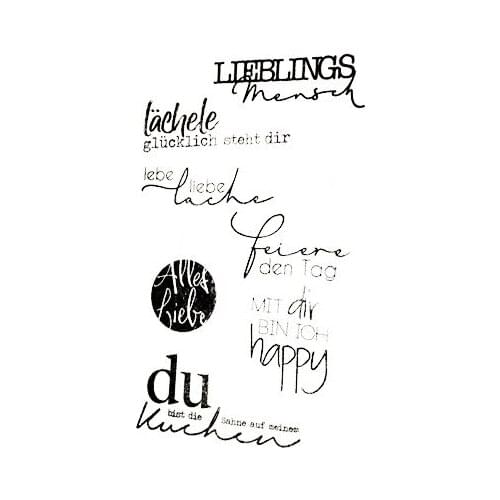 LIEBLINGS
Mensch
lächele
glücklich steht dir
lebe
liebe
lache
feiere
den Tag
Alles
Liebe
MIT dir
BIN ICH
happy
du
bist die Sahne auf meinem
Kuchen